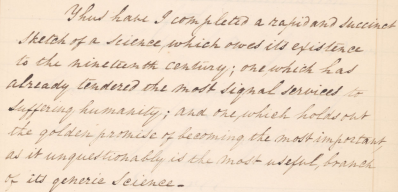 Thus have I completed a rapid and succinct
sketch of a science, which owes its existence
to the nineteenth century; one, which has
already tendered the most signal services to
suffering humanity; and one, which holds out
the golden promise of becoming the most important,
as it unquestionably is the most useful, branch
of its generic science.